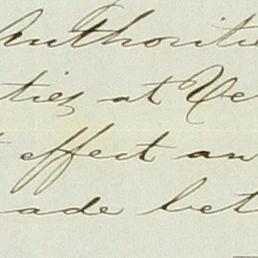 Authoritie
ties at Ve
effect an
ade bet